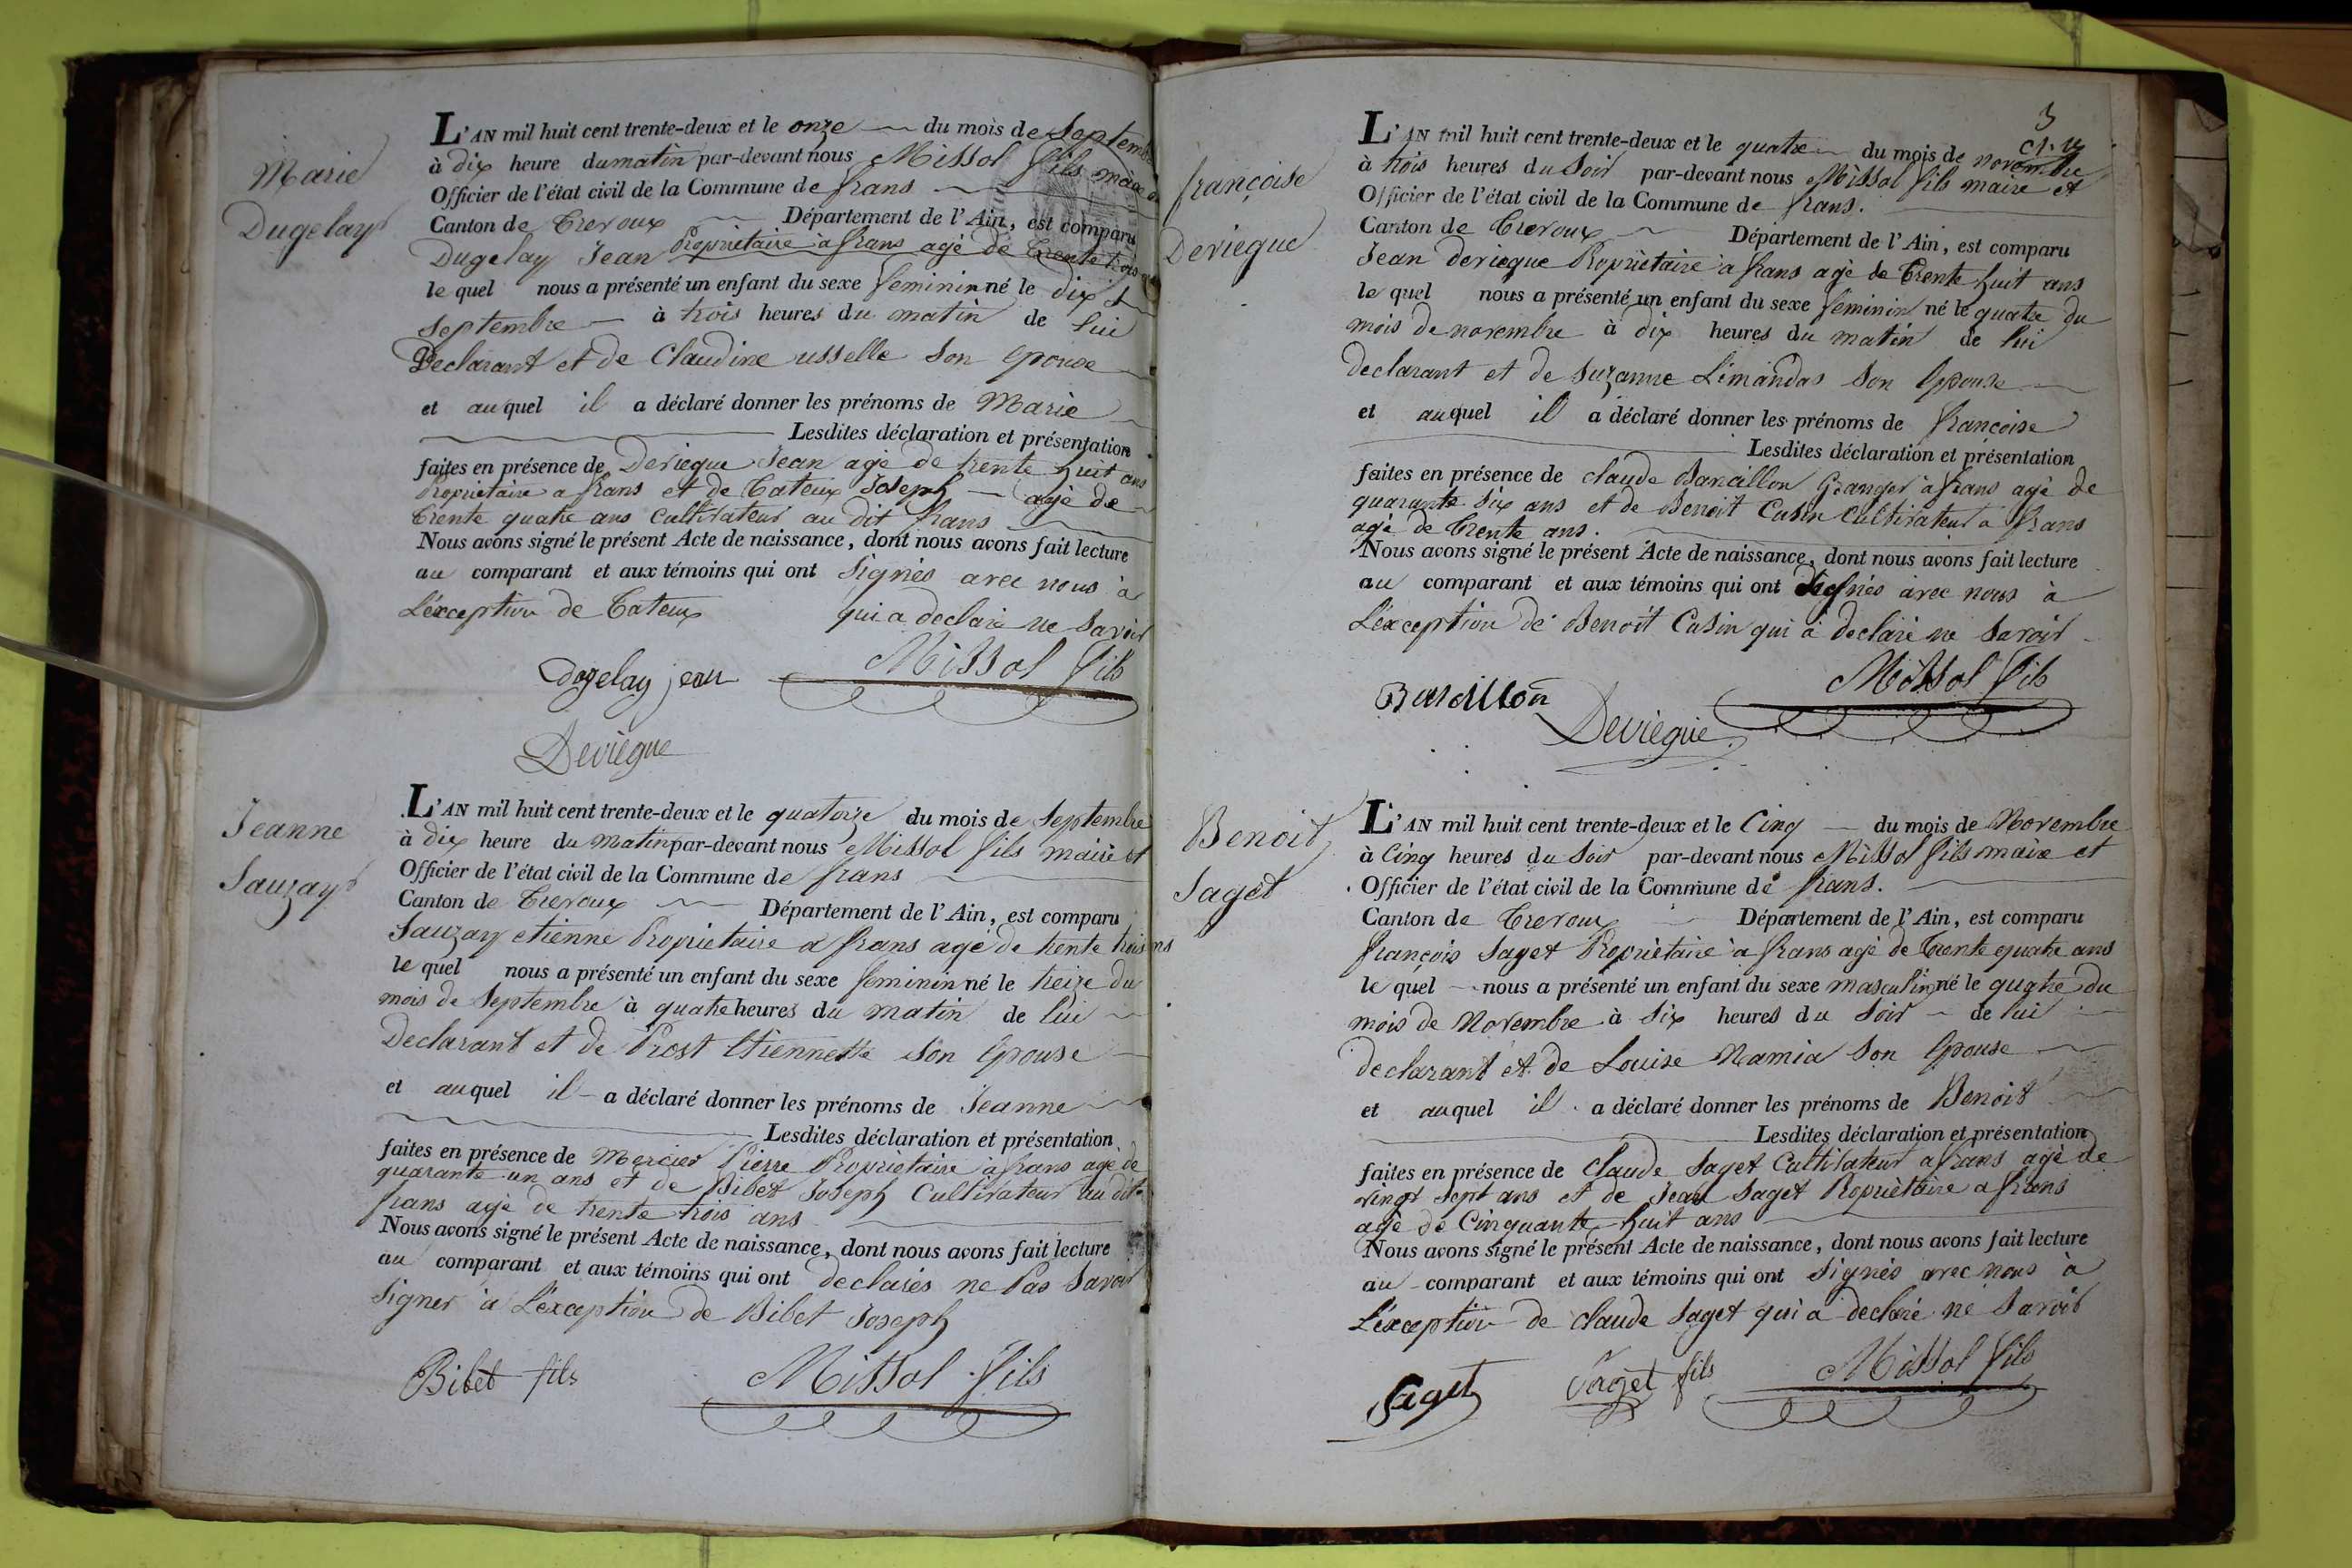 Marie
Dugelay
L'AN mil huit cent trente-deux et le onze du mois de Septembre
à dix heure du matin par-devant nous Missol fils maire
Officier de l'état civil de la Commune de frans
Canton de Trevoux Département de l'Ain, est comparu
Dugelay Jean Propriétaire à frans agé de Trente trois
le quel nous a présenté un enfant du sexe feminin né le dix
Septembre à trois heures du matin de lui
Declarant et de Claudine usselle son epouse
et auquel il a déclaré donner les prénoms de Marie
Lesdites déclaration et présentation
faites en présence de Deriegue Jean agé de trente huit ans
Propriétaire a frans et de Cateux Joseph agé de
Trente quatre ans Cultivateur au dit frans
Nous avons signé le présent Acte de naissance, dont nous avons fait lecture
au comparant et aux témoins qui ont signés avec nous à
L'exception de Cateux qui a declaré ne Savoir
Missol fils
Dogelay jean
Deviegue
Jeanne
Sauzay
L'AN mil huit cent trente-deux et le quatorze du mois de Septembre
à dix heure du Matin par-devant nous Missol fils maire et
Officier de l'état civil de la Commune de frans
Canton de Trevoux Département de l'Ain, est comparu
Sauzay etienne Propriétaire a frans agé de trente trois ans
le quel nous a présenté un enfant du sexe feminin né le treize du
mois de Septembre à quatre heures du matin de lui
Declarant et de Prost Etiennette son Epouse
et auquel il a déclaré donner les prénoms de Jeanne
Lesdites déclaration et présentation
faites en présence de Mercier Pierre Propriétaire à frans agé de
quarante un ans et de Bibet Joseph Cultivateur au dit
frans agé de trente trois ans
Nous avons signé le présent Acte de naissance, dont nous avons fait lecture
au comparant et aux témoins qui ont declarés ne Pas Savoir
Signer à L'exception de Bibet Joseph
Bibet fils Missol fils
3
françoise
Deriegue
L'AN mil huit cent trente-deux et le quatre du mois de novembre
à trois heures du Soir par-devant nous Missol fils maire et
Officier de l'état civil de la Commune de frans.
Canton de Trevoux Département de l'Ain, est comparu
Jean deriegue Propriétaire à frans agé de Trente huit ans
le quel nous a présenté un enfant du sexe feminin né le quatre du
mois de novembre à dix heures du matin de lui
declarant et de Suzanne Limandas Son Epouse
et auquel il a déclaré donner les prénoms de françoise
Lesdites déclaration et présentation
faites en présence de claude Barcillon Granger à frans agé de
quarante Six ans et de Benoit Casin Cultivateur a frans
agé de Trente ans.
Nous avons signé le présent Acte de naissance, dont nous avons fait lecture
au comparant et aux témoins qui ont signés avec nous à
L'exception de Benoit Casin qui à declaré ne Savoir
Missol fils
Barcillon
Deviegue
Benoit
Saget
L'AN mil huit cent trente-deux et le Cinq du mois de Novembre
à Cinq heures du Soir par-devant nous Missol fils maire et
Officier de l'état civil de la Commune de frans.
Canton de Trevoux Département de l'Ain, est comparu
françois Saget Propriétaire à frans agé de Trente quatre ans
le quel nous a présenté un enfant du sexe masculin né le quatre du
mois de Novembre à Six heures du Soir de lui
declarant et de Louise Namia Son Epouse
et auquel il a déclaré donner les prénoms de Benoit
Lesdites déclaration et présentation
faites en présence de claude Saget Cultivateur a frans agé de
vingt Sept ans et de Jean Saget Propriétaire a frans
agé de Cinquante huit ans
Nous avons signé le présent Acte de naissance, dont nous avons fait lecture
au comparant et aux témoins qui ont signés avec nous à
L'exception de claude Saget qui a declaré ne Savoir
Saget Saget fils Missol fils